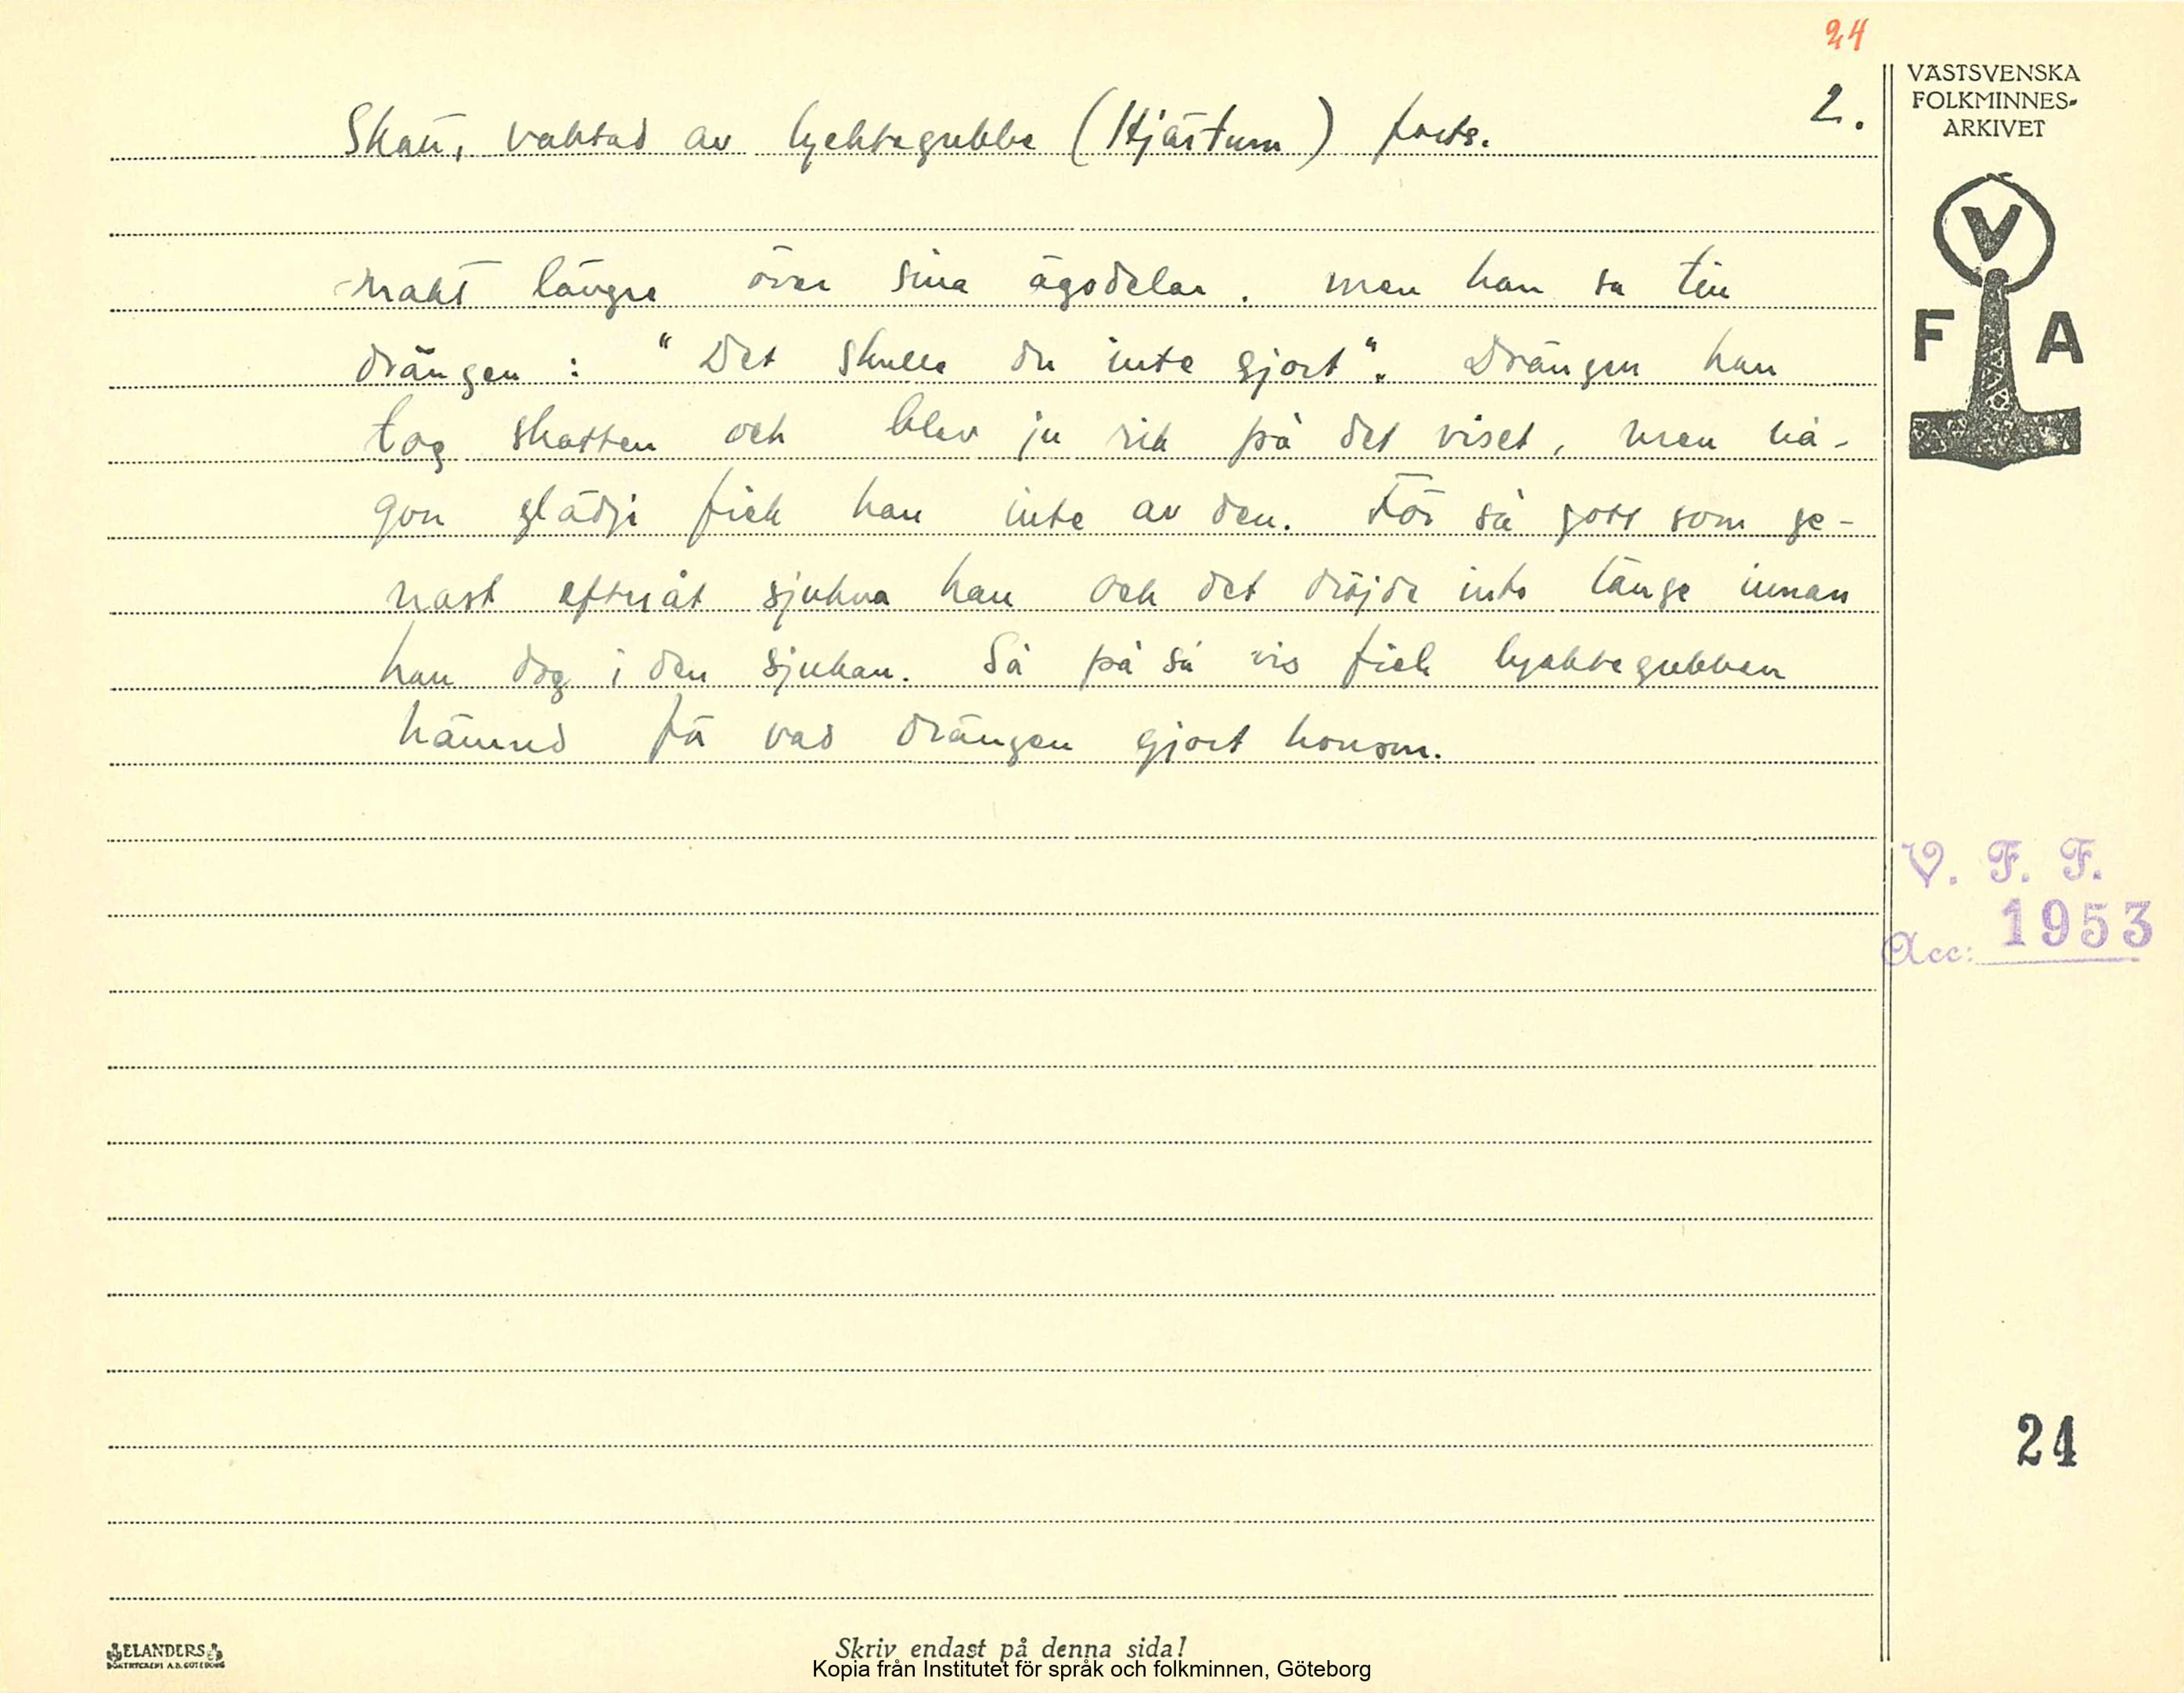 24
2.
Skatt, vaktad av lyktegubbe (Hjärtum) forts.
makt längre över sina ägodelar. men han sa till
drängen : "Det skulle du inte gjort". Drängen han
tog skatten och blev ju rik på det viset, men nå-
gon glädje fick han inte av den. För så gott som ge-
nast efteråt sjukna han och det dröjde inte länge innan
han dog i den sjukan. Så på så vis fick lyktegubben
hämnd för vad drängen gjort honom.
VÄSTSVENSKA
FOLKMINNES-
ARKIVET
V
F A
V. F. F.
Acc: 1953
24
ELANDERS
BOKTRYCKERI A.B. GÖTEBORG
Skriv endast på denna sida!
Kopia från Institutet för språk och folkminnen, Göteborg